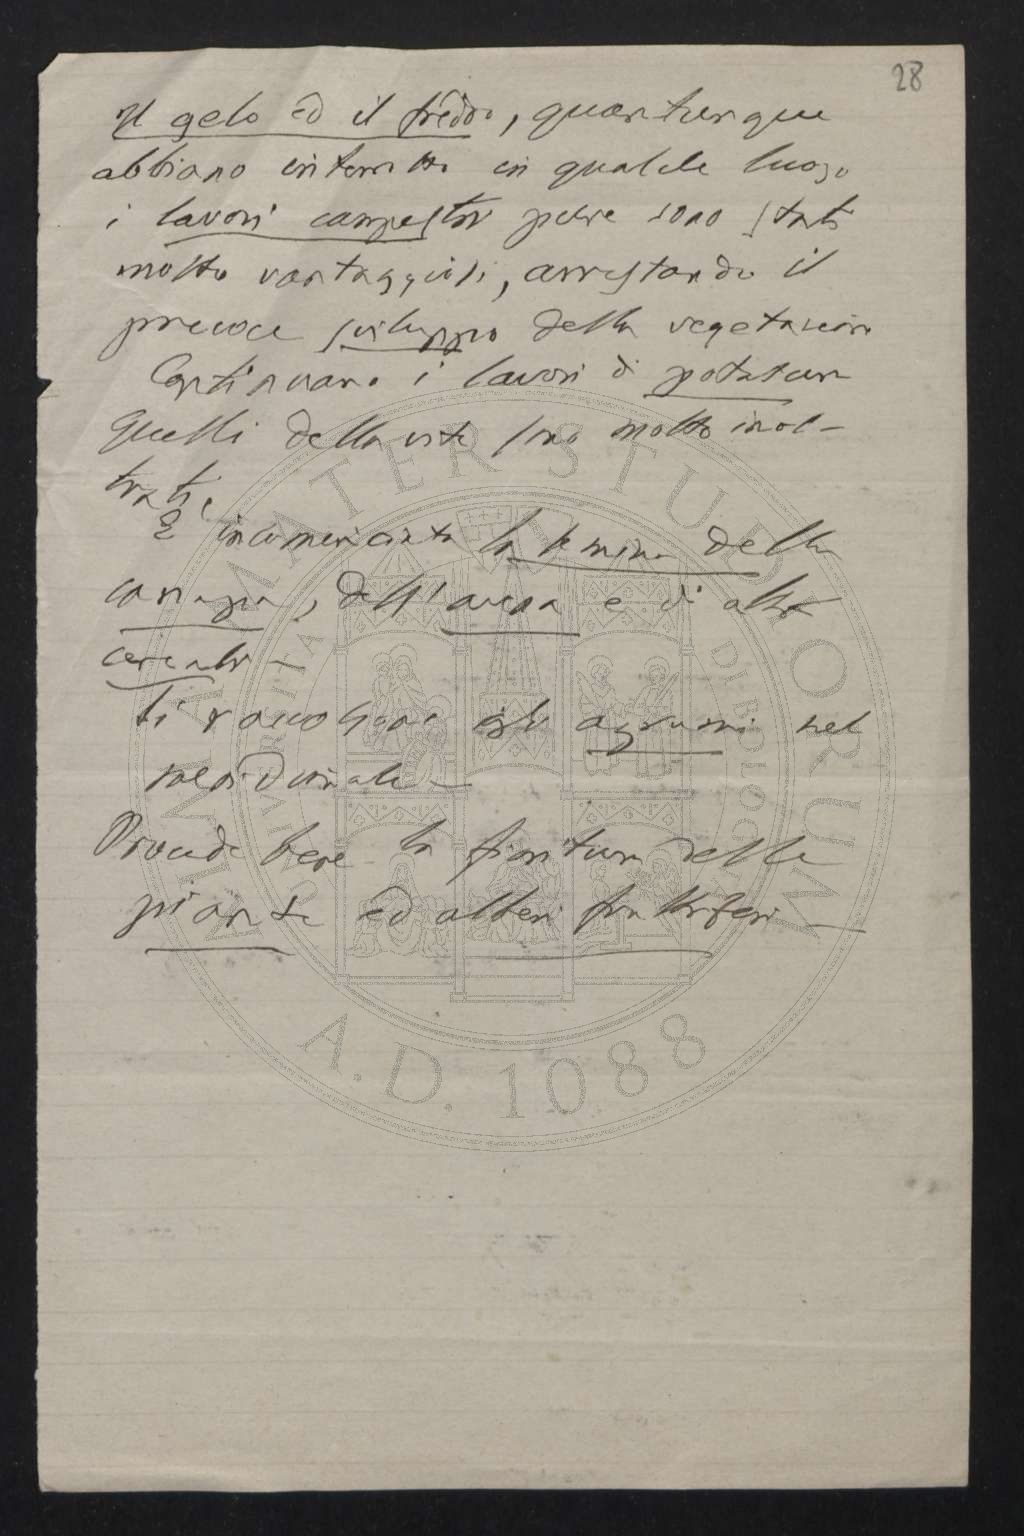 28
Il gelo ed il freddo, quantunque
abbiano interrotto in qualche luogo
i lavori campestri pure sono stati
molto vantaggiosi, arrestando il
precoce sviluppo della vegetazione
Continuano i lavori di potatura
Quelli della vite sono molto inol-
trati.
È incominciata la semina della
canapa, dell'avena e di altri
cereali -
Si raccolgono gli agrumi nel
meridionale -
Procede bene la fioritura delle
piante ed alberi fruttiferi -
ALMA MATER STUDIORUM
UNIVERSITÀ DI BOLOGNA
A.D. 1088